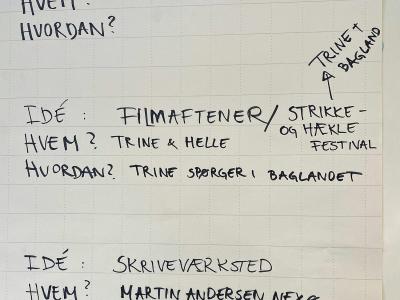 HVEM?
HVORDAN?
TRINE +
BAGLAND
IDÉ : FILMAFTENER / STRIKKE-
OG HÆKLE
FESTIVAL
HVEM? TRINE & HELLE
HVORDAN? TRINE SPØRGER I BAGLANDET
IDÉ : SKRIVEVÆRKSTED
HVEM? MARTIN ANDERSEN NEXØ